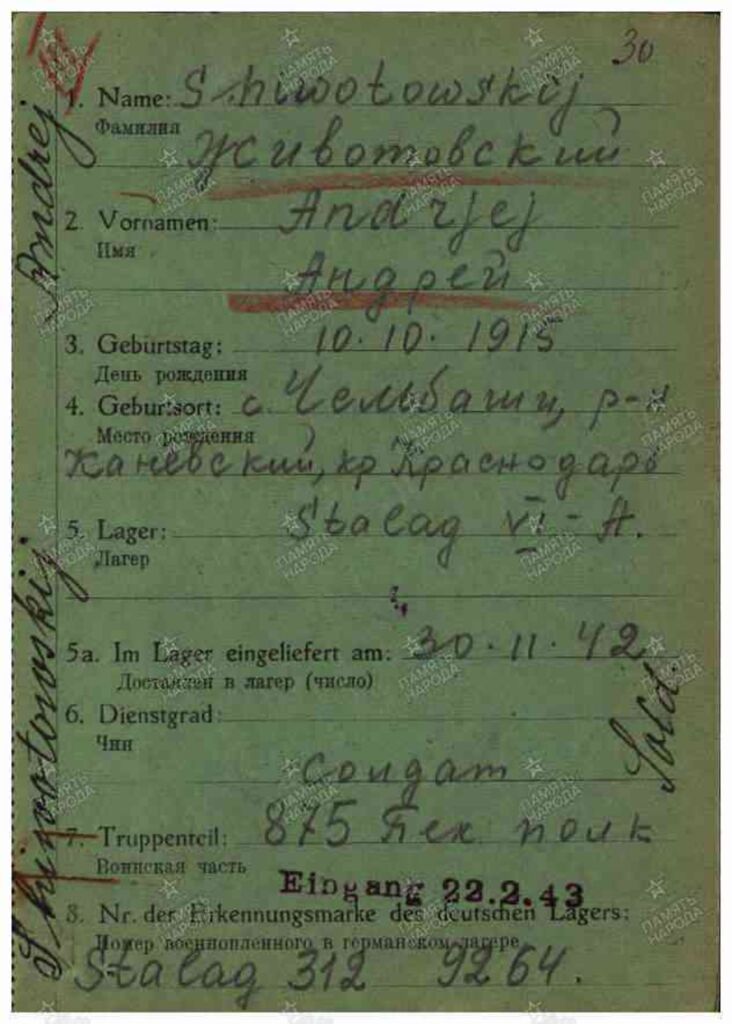 30
1. Name: Shiwotowskij
Фамилия
Животовский
2. Vornamen: Andrjej
Имя
Андрей
3. Geburtstag: 10.10.1915
День рождения
4. Geburtsort: с. Челбаши, р-н
Место рождения
Каневский, кр Краснодарс
5. Lager: Stalag VI-A.
Лагер
5a. Im Lager eingeliefert am: 30.11.42
Доставлен в лагер (число)
6. Dienstgrad: Sold.
Чин
солдат
7. Truppenteil: 875 пех полк
Воинская часть
Eingang 22.2.43
8. Nr. der Erkennungsmarke des deutschen Lagers:
Номер военнопленного в германском лагере
Stalag 312 9264.
Shiwotowskij Andrej
ПАМЯТЬ НАРОДА